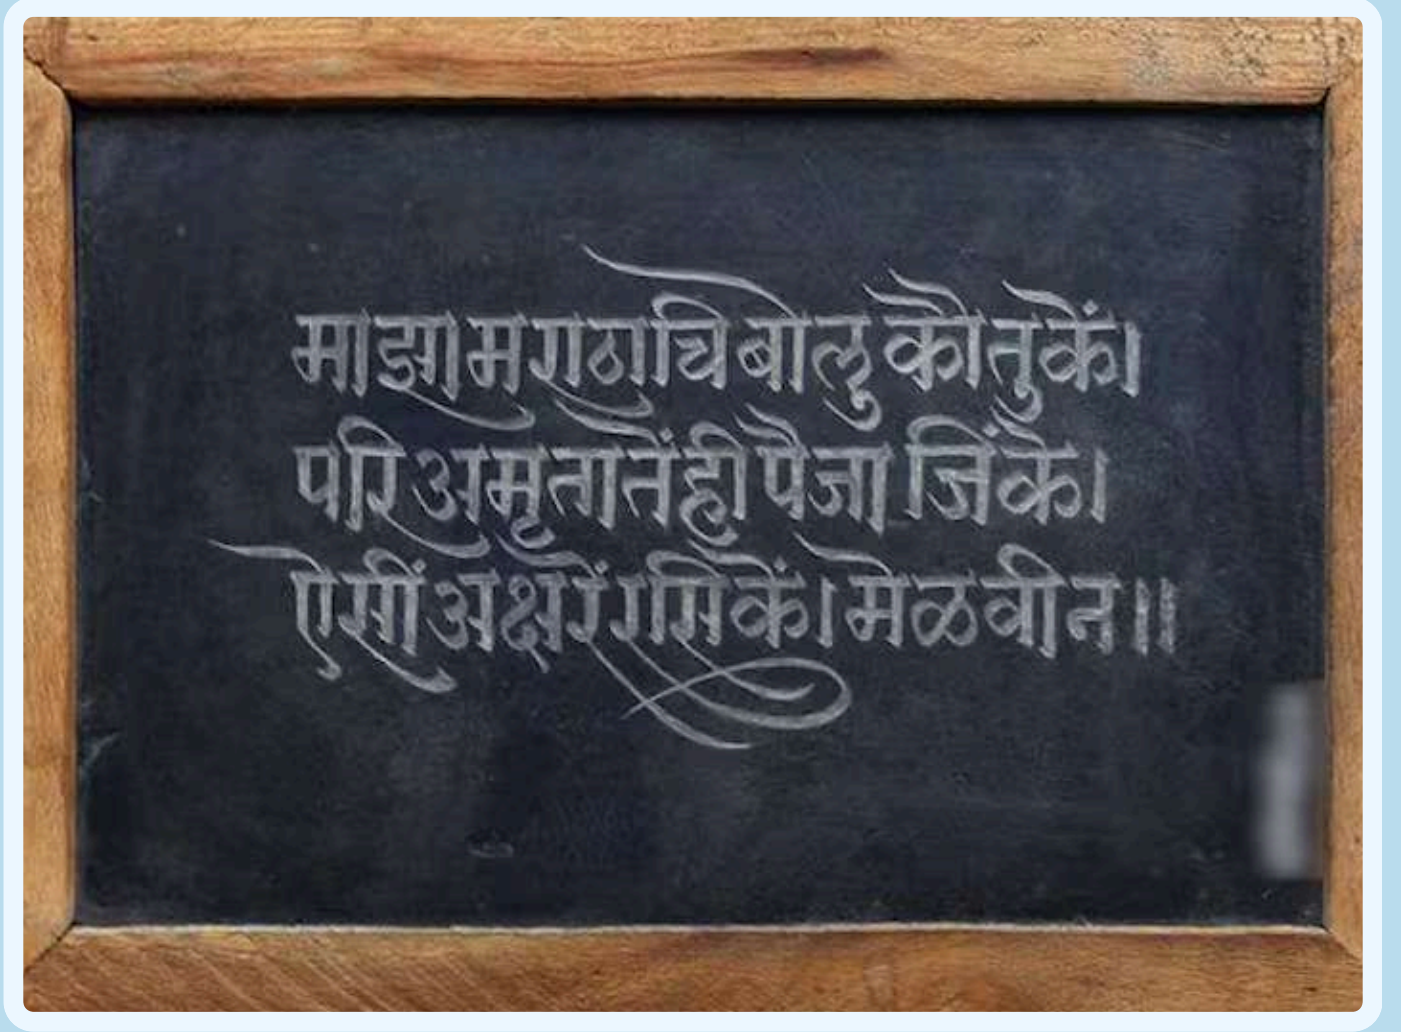 माझा मराठाचि बोलु कौतुकें।
परि अमृतातेंही पैजा जिंके।
ऐसीं अक्षरें रसिकें। मेळवीन॥